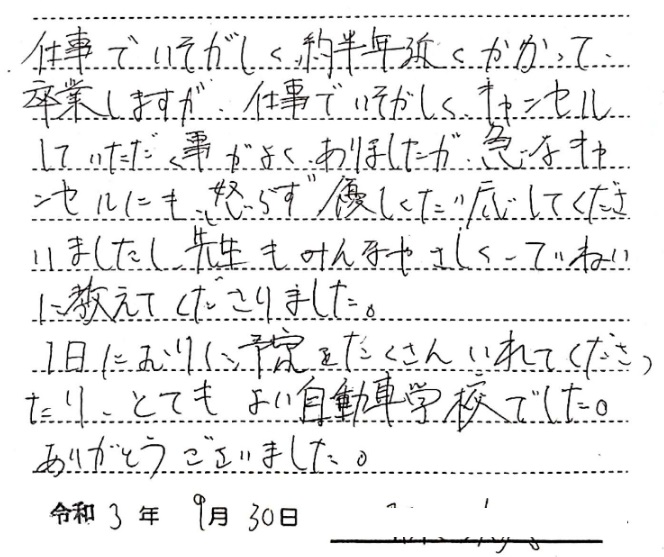 仕事でいそがしく、約半年近くかかって、
卒業しますが、仕事でいそがしく、キャンセル
していただく事がよくありましたが、急なキャ
ンセルにも、怒らず優しくたい応してくださ
いましたし、先生もみんなやさしく、ていねい
に教えてくださりました。
1日にむりに予定をたくさんいれてくださっ
たり、とてもよい自動車学校でした。
ありがとうございました。
令和3年 9月30日